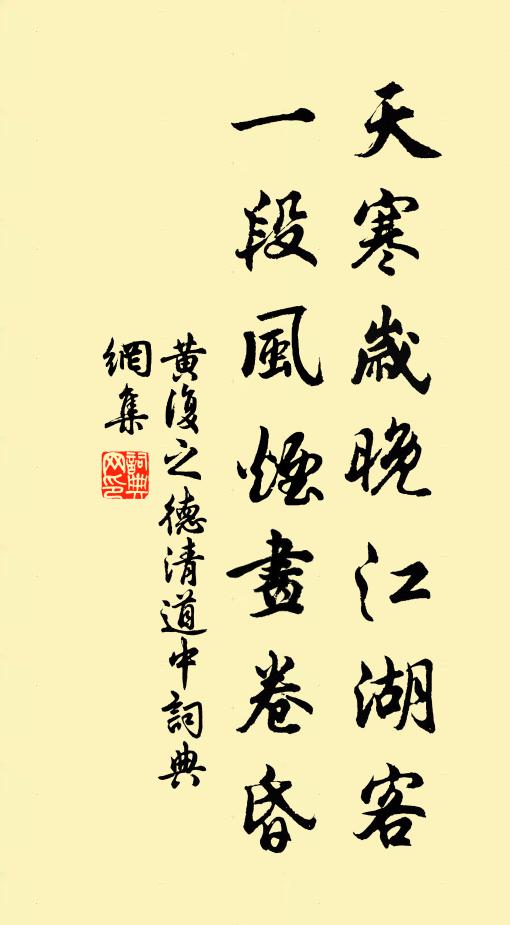 天寒歲晚江湖客
一段風煙畫卷昏
黃復之德清道中詞典
網集
詞典
网印